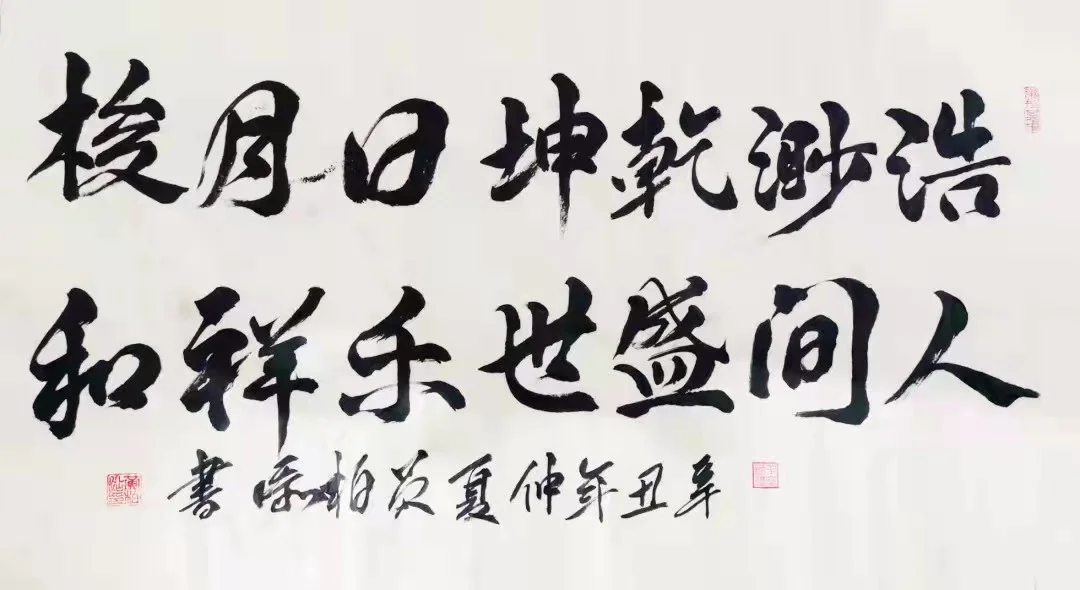 浩渺乾坤日月梭
人间盛世乐祥和
辛丑年仲夏黄柏添書